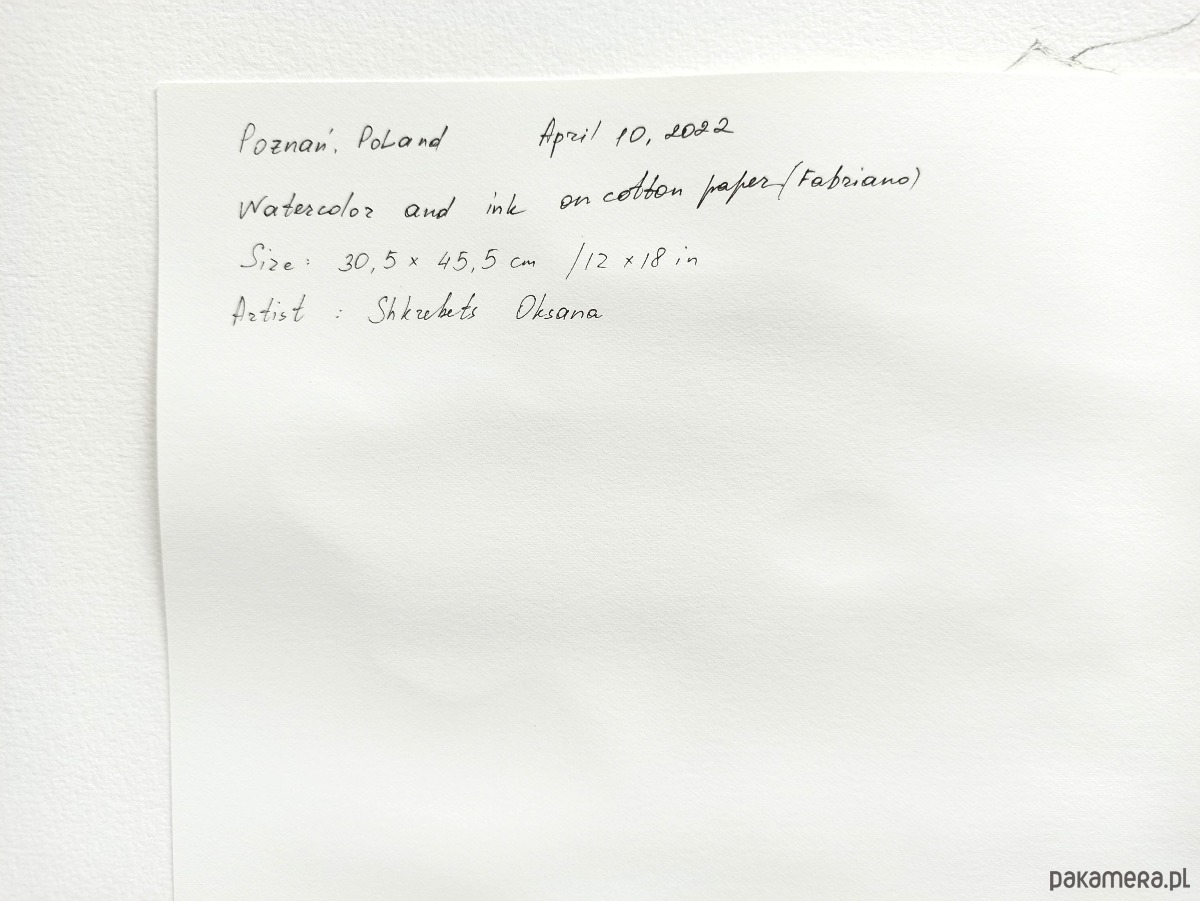 Poznań, Poland April 10, 2022
Watercolor and ink on cotton paper (Fabriano)
Size: 30,5 x 45,5 cm /12 x 18 in
Artist : Shkrebets Oksana
pakamera.pl